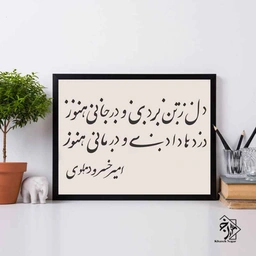 دل ز تن بردی و در جانی هنوز
دردها دادی و درمانی هنوز
امیر خسرو دهلوی